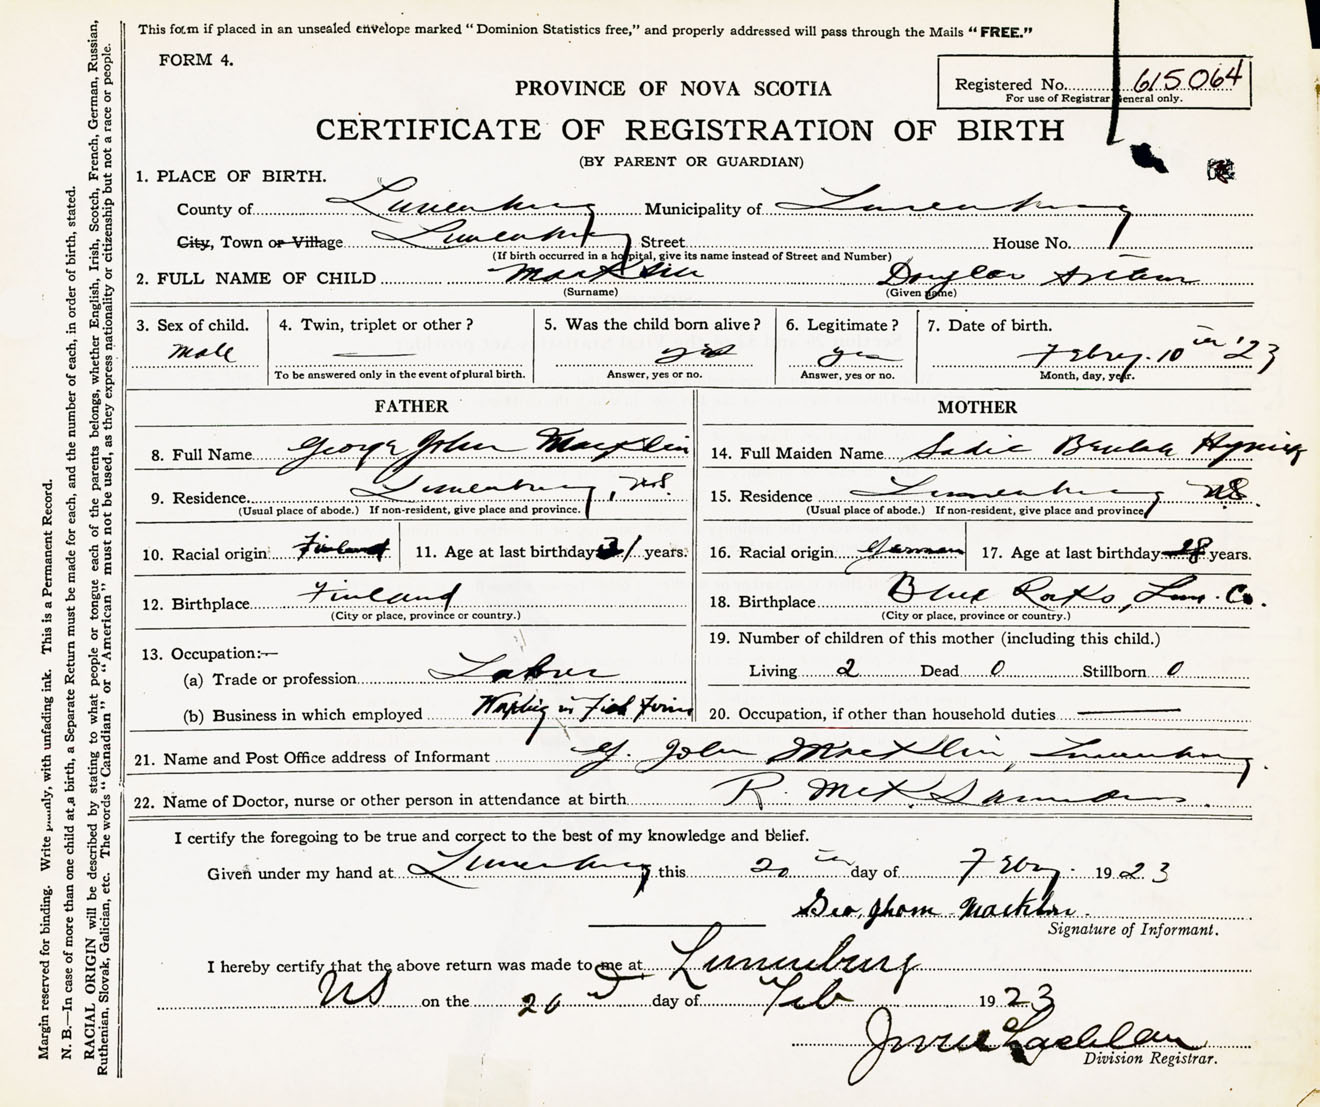 This form if placed in an unsealed envelope marked "Dominion Statistics free," and properly addressed will pass through the Mails "FREE."
FORM 4.
Registered No. 615064
For use of Registrar General only.
PROVINCE OF NOVA SCOTIA
CERTIFICATE OF REGISTRATION OF BIRTH
(BY PARENT OR GUARDIAN)
1. PLACE OF BIRTH.
County of Lunenburg Municipality of Lunenburg
City, Town or Village Lunenburg Street House No.
(If birth occurred in a hospital, give its name instead of Street and Number)
2. FULL NAME OF CHILD Macklin Douglas
(Surname) (Given name)
3. Sex of child. 4. Twin, triplet or other? 5. Was the child born alive? 6. Legitimate? 7. Date of birth.
Male yes yes Febry. 10th '23
To be answered only in the event of plural birth. Answer, yes or no. Answer, yes or no. Month, day, year.
FATHER MOTHER
8. Full Name George John Macklin 14. Full Maiden Name Sadie Beulah
9. Residence Lunenburg, N.S. 15. Residence Lunenburg N.S.
(Usual place of abode.) If non-resident, give place and province. (Usual place of abode.) If non-resident, give place and province
10. Racial origin Finland 11. Age at last birthday 31 years. 16. Racial origin German 17. Age at last birthday 28 years.
12. Birthplace Finland 18. Birthplace Blue Rocks, Lun. Co.
(City or place, province or country.) (City or place, province or country.)
13. Occupation:— 19. Number of children of this mother (including this child.)
(a) Trade or profession Labor Living 2 Dead 0 Stillborn 0
(b) Business in which employed Working in Fish Firm 20. Occupation, if other than household duties
21. Name and Post Office address of Informant G. John Macklin, Lunenburg
22. Name of Doctor, nurse or other person in attendance at birth R. McK. Saunders.
I certify the foregoing to be true and correct to the best of my knowledge and belief.
Given under my hand at Lunenburg this 20th day of Febry. 1923
Geo, Jhom Macklin.
Signature of Informant.
I hereby certify that the above return was made to me at Lunenburg
NS on the 20 day of Feb 1923
Division Registrar.
Margin reserved for binding. Write plainly, with unfading ink. This is a Permanent Record.
N. B.—In case of more than one child at a birth, a Separate Return must be made for each, and the number of each, in order of birth, stated.
RACIAL ORIGIN will be described by stating to what people or tongue each of the parents belongs, whether English, Irish, Scotch, French, German, Russian,
Ruthenian, Slovak, Galician, etc. The words "Canadian" or "American" must not be used, as they express nationality or citizenship but not a race or people.